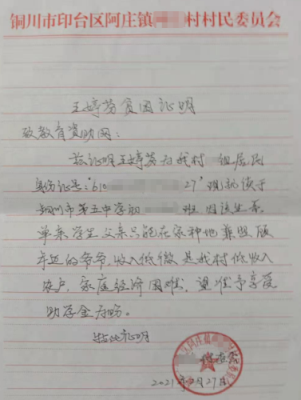 铜川市印台区阿庄镇 村村民委员会
王婷 贫困证明
致教育资助网:
兹证明王婷 为我村 组居民
身份证号:'610 27'现就读于
铜川市第五中学初 班 因该生
单亲 学生父亲只能在家种地兼照顾
年迈的爷爷,收入低微 是我村低收入
农户,家庭经济困难,望准予享受
助学金为盼。
特此证明
2021年 月27日